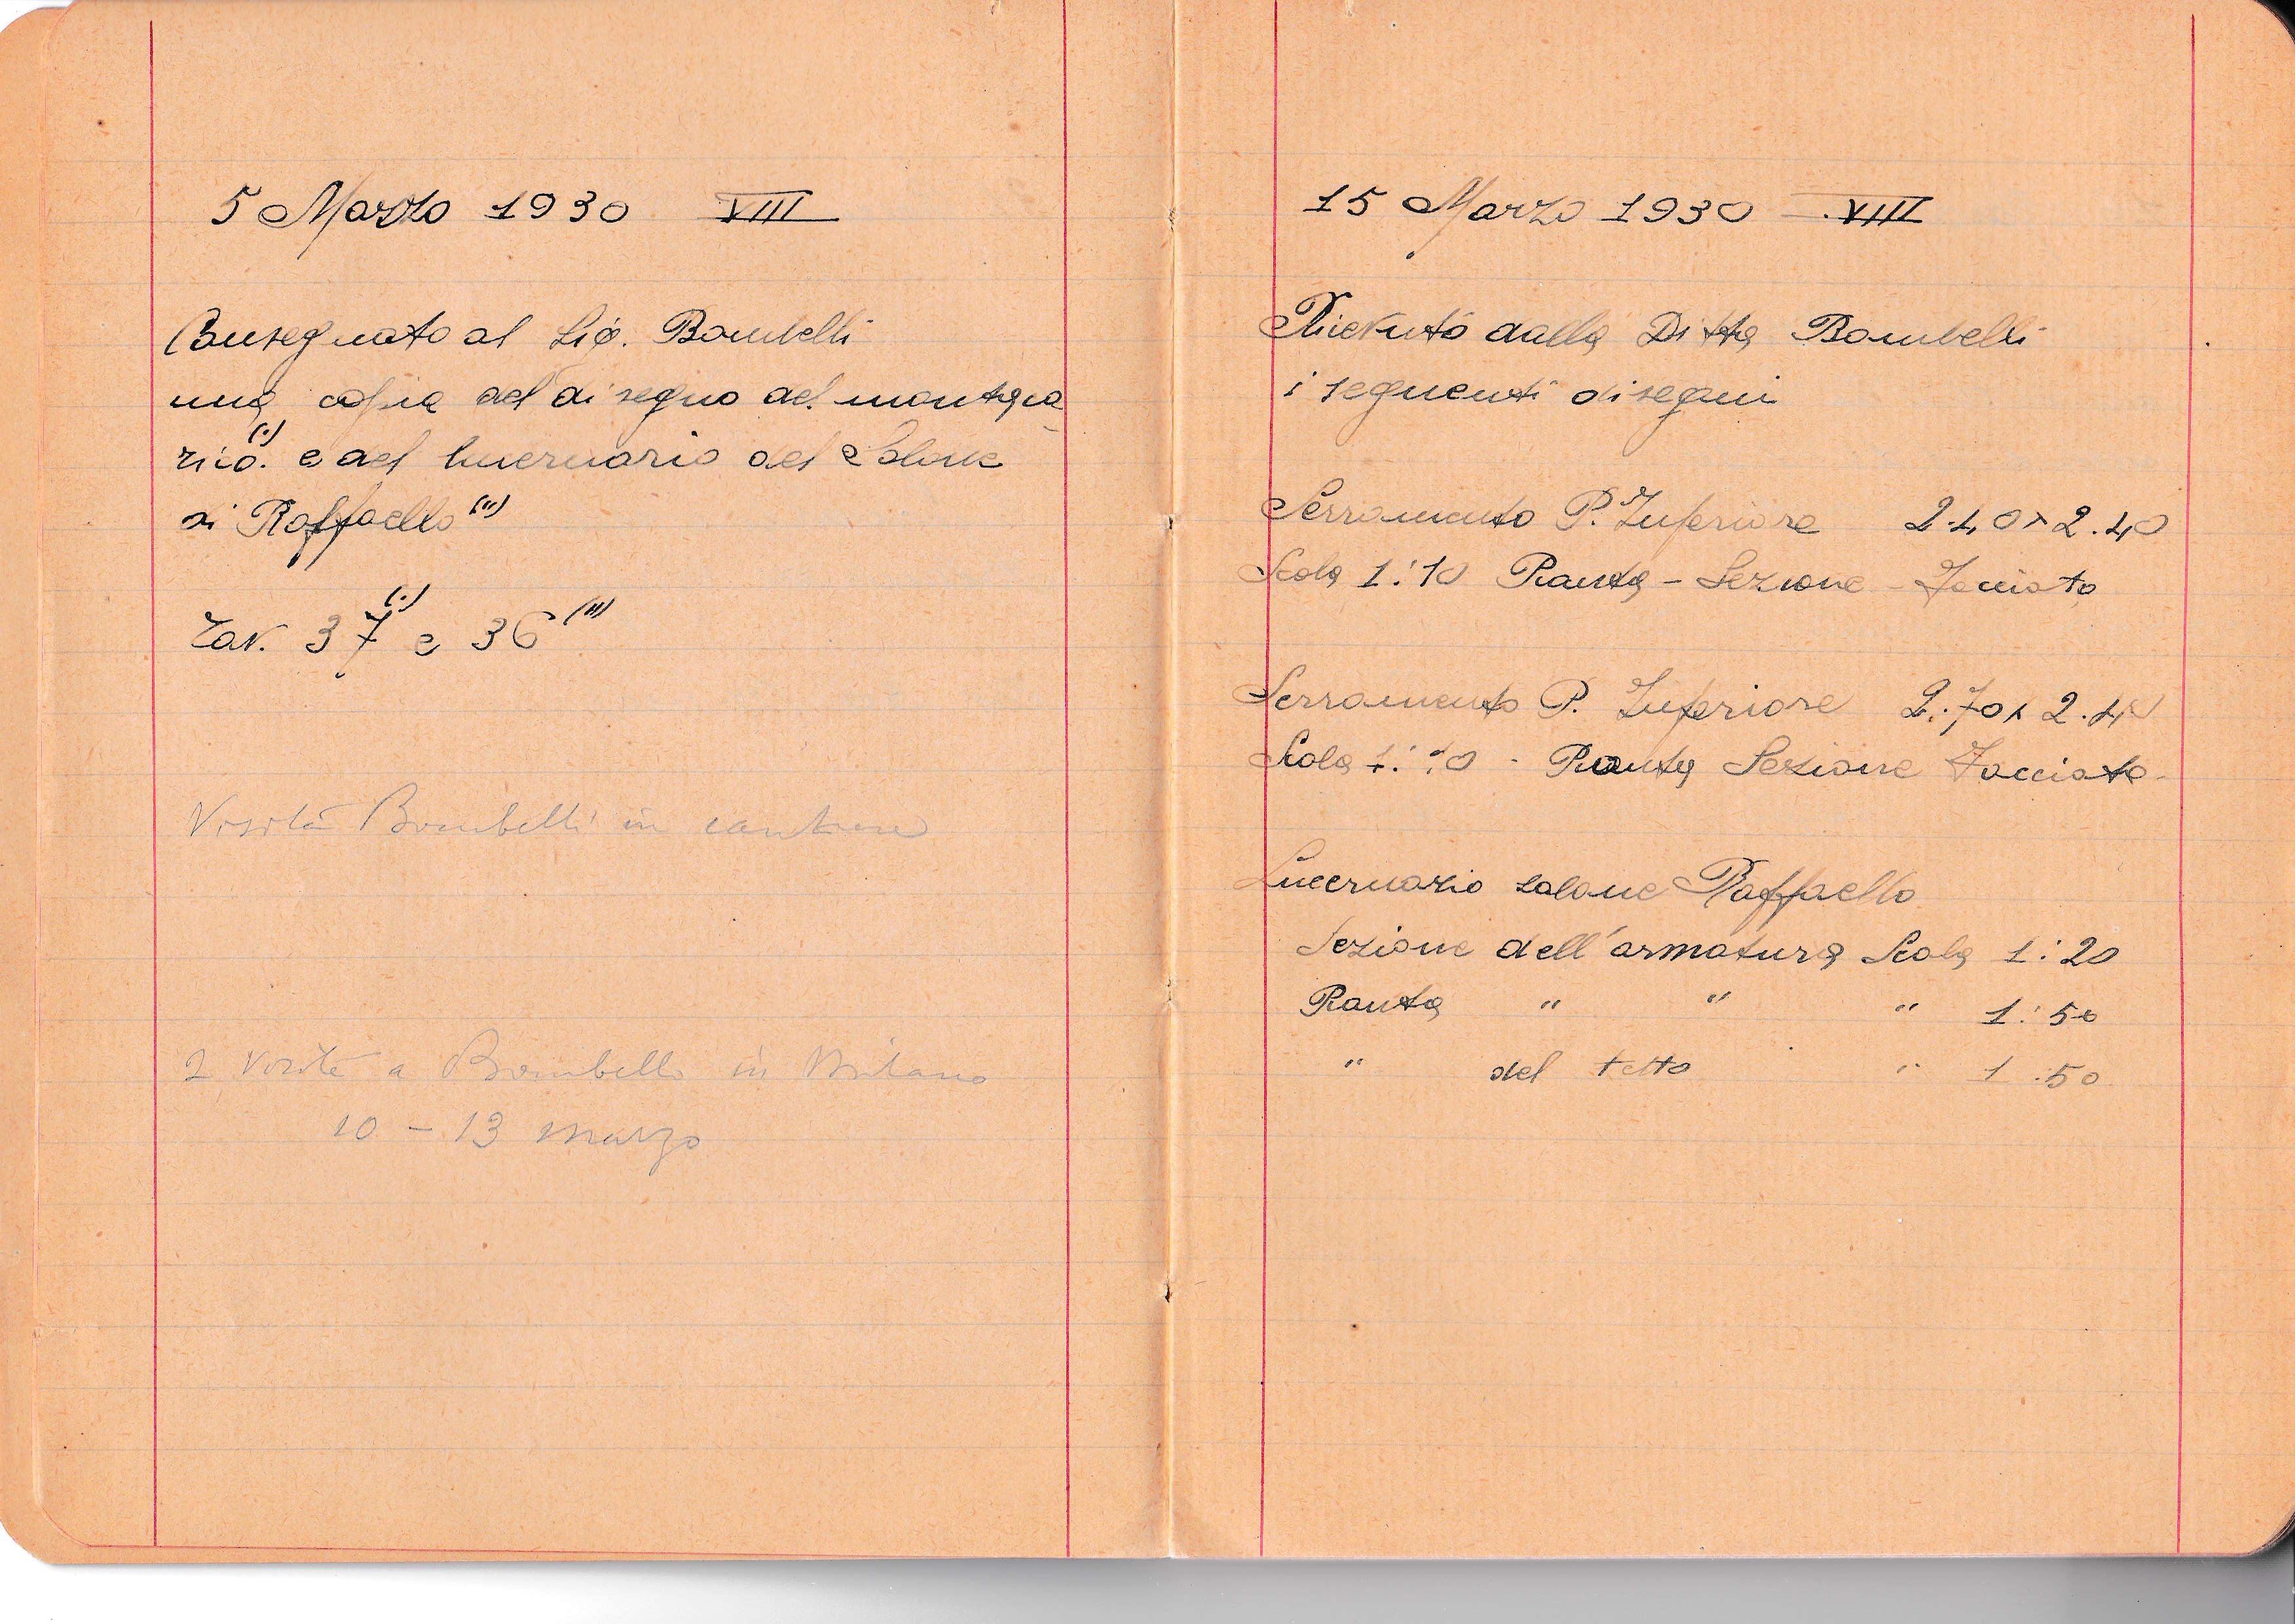 5 Marzo 1930 VIII
Consegnato al Sig. Bombelli
una copia del disegno del montaca
rico. (i) e del lucernario del Salone
di Raffaello (ii)
Tav. 37 (i) e 36 (ii)
Visita Bombelli in cantiere
2 Visite a Bombelli in Milano
10 – 13 marzo
15 Marzo 1930 – VIII
Ricevuto dalla Ditta Bombelli
i seguenti disegni
Serramento P. Inferiore 2.40 x 2.40
Scala 1:10 Pianta – Sezione – Facciata
Serramento P. Inferiore 2.70 x 2.40
Scala 1:10 - Pianta Sezione Facciata
Lucernario salone Raffaello
Sezione dell'armatura Scala 1:20
Pianta " " " 1:50
" del tetto " 1:50